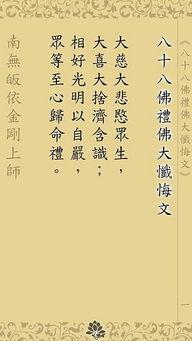 《八十八佛禮佛大懺悔文》
八十八佛禮佛大懺悔文
大慈大悲愍眾生，
大喜大捨濟含識；
相好光明以自嚴，
眾等至心歸命禮。
南無皈依金剛上師
一